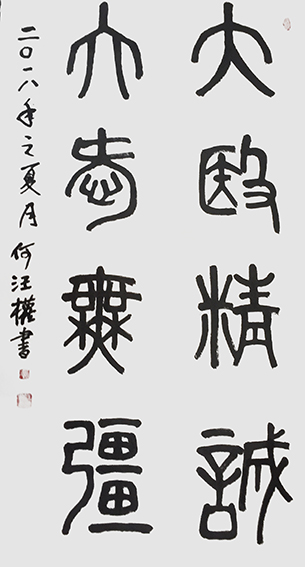 大醫精誠
大愛無疆
二〇一八年之夏月何汪權書